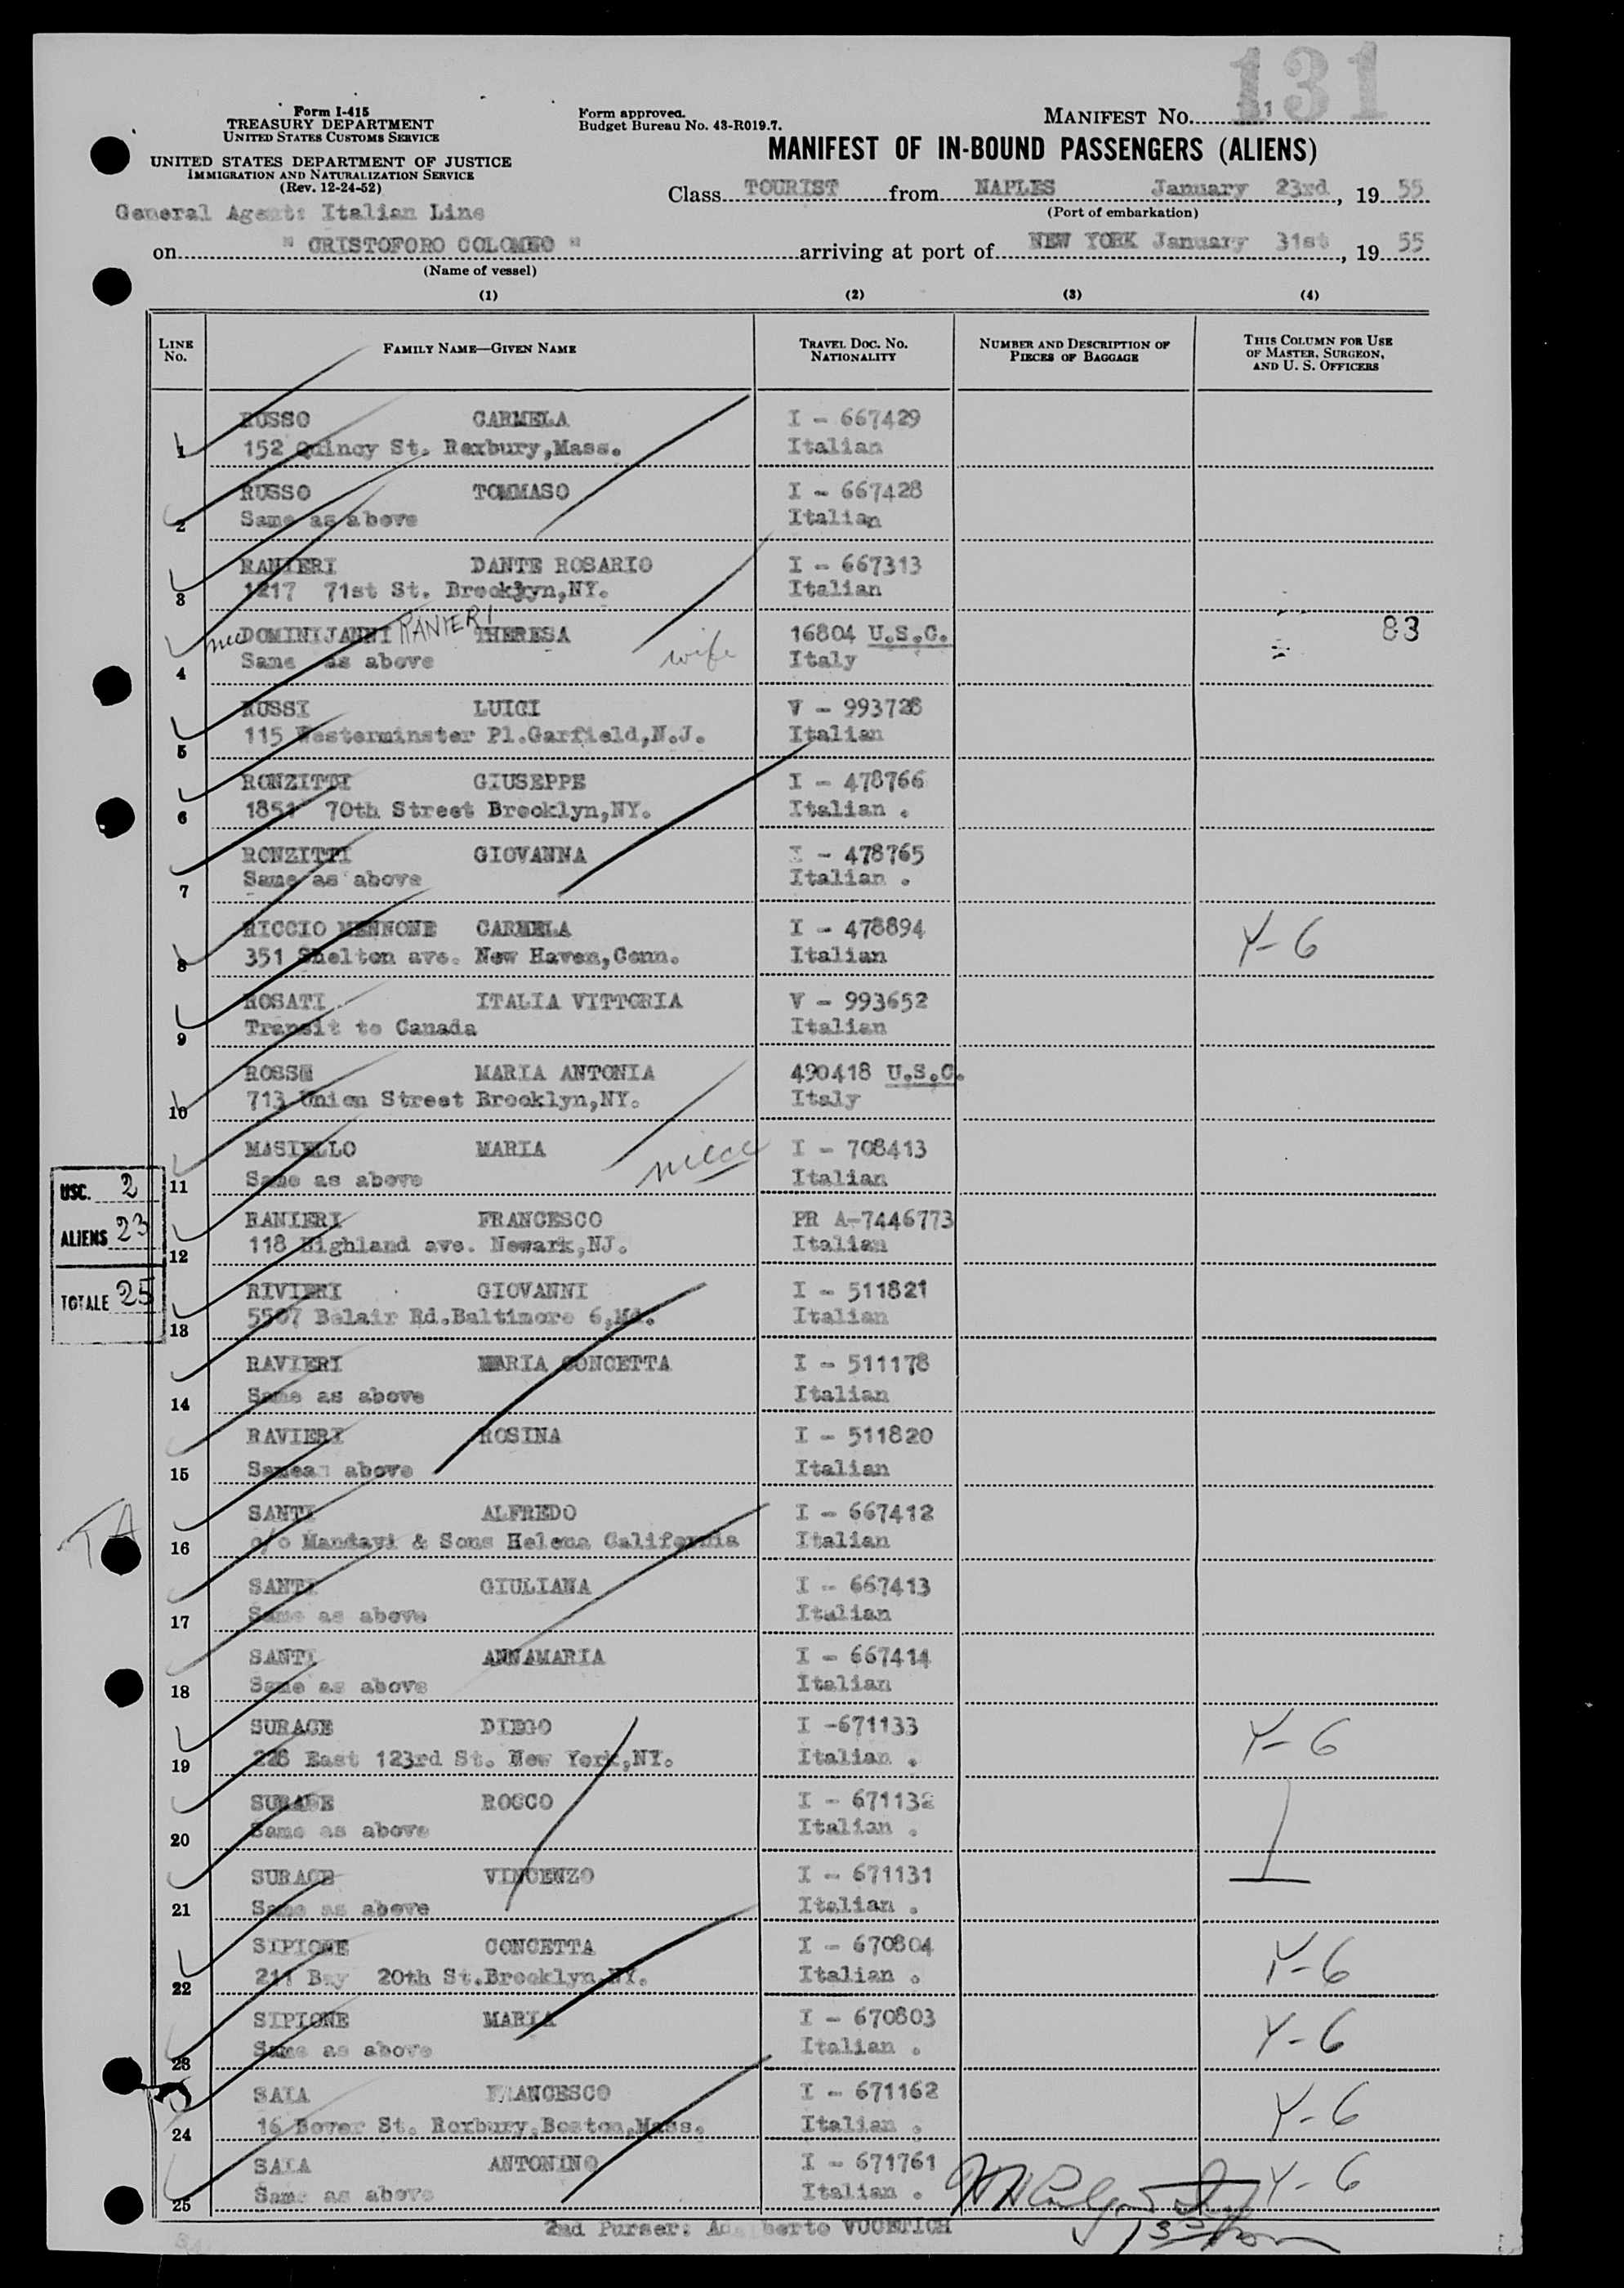 131
Form I-415
TREASURY DEPARTMENT
UNITED STATES CUSTOMS SERVICE
Form approved.
Budget Bureau No. 43-R019.7.
MANIFEST NO. 1
UNITED STATES DEPARTMENT OF JUSTICE
IMMIGRATION AND NATURALIZATION SERVICE
(Rev. 12-24-52)
MANIFEST OF IN-BOUND PASSENGERS (ALIENS)
Class TOURIST from NAPLES January 23rd, 19 55
(Port of embarkation)
General Agent: Italian Line
on " CRISTOFORO COLOMBO " arriving at port of NEW YORK January 31st, 19 55
(Name of vessel)
(1) (2) (3) (4)
LINE No. FAMILY NAME—GIVEN NAME TRAVEL DOC. NO. NATIONALITY NUMBER AND DESCRIPTION OF PIECES OF BAGGAGE THIS COLUMN FOR USE OF MASTER, SURGEON, AND U. S. OFFICERS
RUSSO CARMELA I - 667429
1 152 Quincy St. Roxbury,Mass. Italian
RUSSO TOMMASO I - 667428
2 Same as above Italian
RANIERI DANTE ROSARIO I - 667313
3 1217 71st St. Brooklyn,NY. Italian
nee DOMINIJANNI RANIERI THERESA 16804 U.S.C. 83
4 Same as above wife Italy
ROSSI LUIGI V - 993728
5 115 Westerminster Pl.Garfield,N.J. Italian
RONZITTI GIUSEPPE I - 478766
6 1851 70th Street Brooklyn,NY. Italian .
RONZITTI GIOVANNA I - 478765
7 Same as above Italian .
RICCIO MENNONE CARMELA I - 478894 Y-6
8 351 Shelton ave. New Haven,Conn. Italian
ROSATI ITALIA VITTORIA V - 993652
9 Transit to Canada Italian
ROSSE MARIA ANTONIA 490418 U.S.C.
10 713 Union Street Brooklyn,NY. Italy
MASIELLO MARIA niece I - 708413
11 Same as above Italian
USC. 2
ALIENS 23
TOTALE 25
RANIERI FRANCESCO PR A-7446773
12 118 Highland ave. Newark,NJ. Italian
RIVIERI GIOVANNI I - 511821
13 5507 Belair Rd.Baltimore 6,Md. Italian
RAVIERI MARIA CONCETTA I - 511178
14 Same as above Italian
RAVIERI ROSINA I - 511820
15 Sameas above Italian
SANTI ALFREDO I - 667412
TA
16 c/o Mandavi & Sons Helena California Italian
SANTI GIULIANA I - 667413
17 Same as above Italian
SANTI ANNAMARIA I - 667414
18 Same as above Italian
SURACE DIEGO I -671133 Y-6
19 228 East 123rd St. New York,NY. Italian .
SURACE ROCCO I - 671132
20 Same as above Italian .
SURACE VINCENZO I - 671131
21 Same as above Italian .
SIPIONE CONCETTA I - 670804 Y-6
22 211 Bay 20th St.Brooklyn,NY. Italian .
SIPIONE MARIA I - 670803 Y-6
23 Same as above Italian .
SAIA FRANCESCO I - 671162 Y-6
24 16 Dover St. Roxbury,Boston,Mass. Italian .
SAIA ANTONINO I - 671761 Y-6
25 Same as above Italian .
2nd Purser: Adalberto VUCETICH